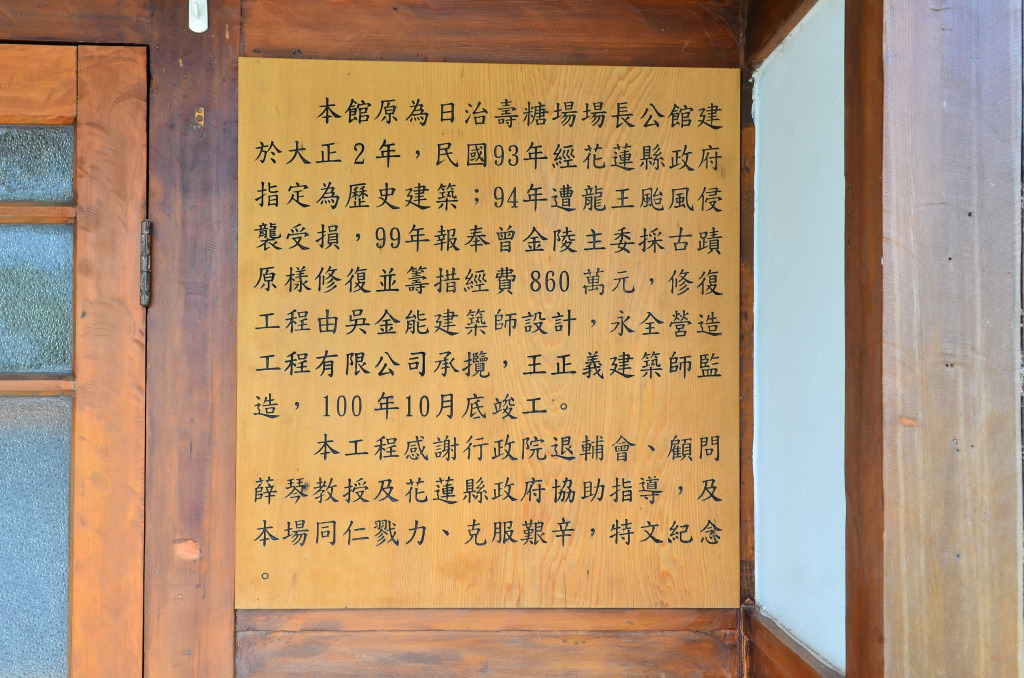 本館原為日治壽糖場場長公館建
於大正2年，民國93年經花蓮縣政府
指定為歷史建築；94年遭龍王颱風侵
襲受損，99年報奉曾金陵主委採古蹟
原樣修復並籌措經費860萬元，修復
工程由吳金能建築師設計，永全營造
工程有限公司承攬，王正義建築師監
造，100年10月底竣工。
本工程感謝行政院退輔會、顧問
薛琴教授及花蓮縣政府協助指導，及
本場同仁戮力、克服艱辛，特文紀念
。